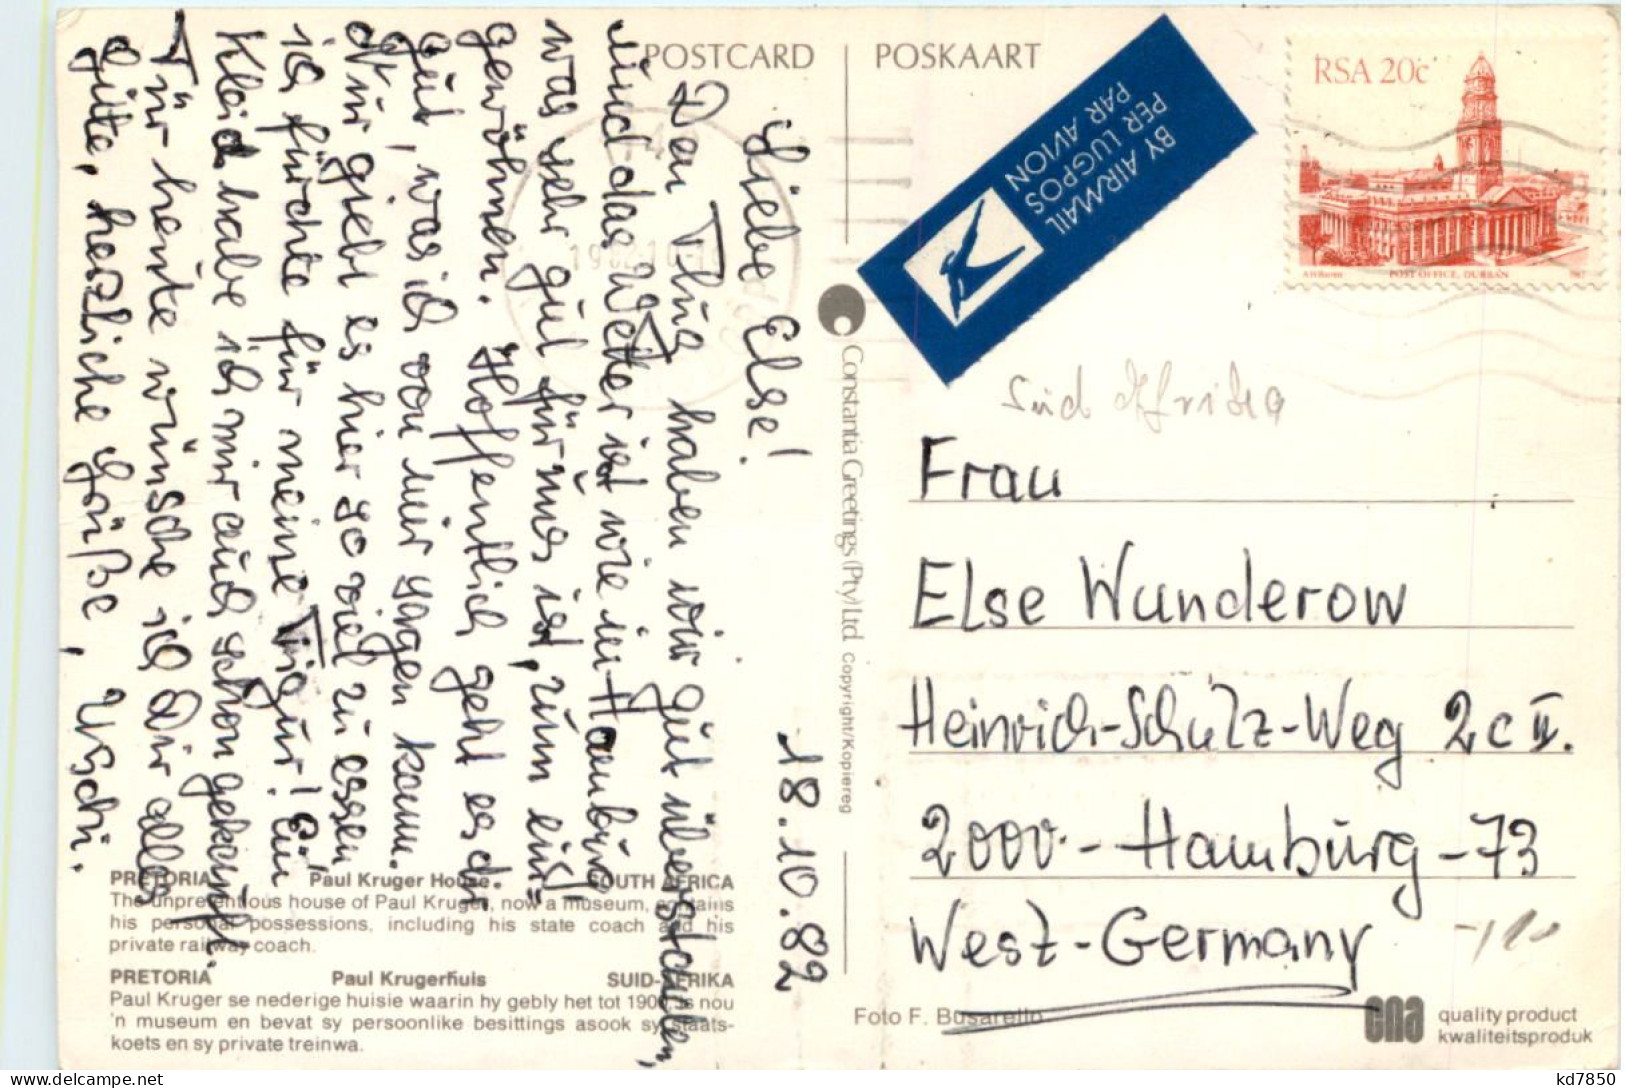 POSTCARD
POSKAART
BY AIRMAIL
PER LUGPOS
PAR AVION
RSA 20c
POST OFFICE, DURBAN
18.10.82
Liebe Else!
Den Flug haben wir gut überstanden,
und das Wetter ist wie in Hamburg
was sehr gut für uns ist, zum ein=
gewöhnen. Hoffentlich geht es dir
gut, was ich von mir sagen kann.
Nur giebt es hier so viel zu essen
ich fürchte für meine Figur! Ein
Kleid habe ich mir auch schon gekauft.
Für heute wünsche ich Dir alles
Gute, herzliche Grüße, Uschi.
Constantia Greetings (Pty) Ltd. Copyright/Kopiereg
Süd Afrika
Frau
Else Wunderow
Heinrich-Schulz-Weg 2c II.
2000.- Hamburg -73
West-Germany
PRETORIA Paul Kruger House SOUTH AFRICA
The unpretentious house of Paul Kruger, now a museum, contains
his personal possessions, including his state coach and his
private railway coach.
PRETORIA Paul Krugerhuis SUID-AFRIKA
Paul Kruger se nederige huisie waarin hy gebly het tot 1900 is nou
'n museum en bevat sy persoonlike besittings asook sy staats-
koets en sy private treinwa.
Foto F. Busarello
cna quality product
kwaliteitsproduk
kd7850